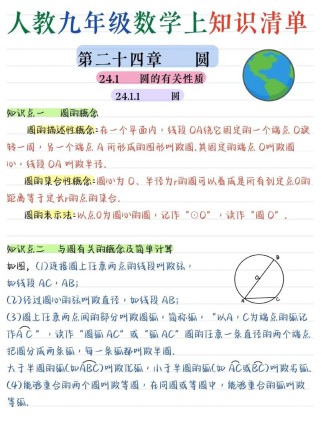 人教九年级数学上知识清单
第二十四章 圆
24.1 圆的有关性质
24.1.1 圆
知识点一 圆的概念
圆的描述性概念:在一个平面内，线段OA绕它固定的一个端点O旋
转一周，另一个端点A所形成的图形叫做圆.其固定的端点O叫做圆
心，线段OA叫做半径.
圆的集合性概念:圆心为O、半径为r的圆可以看成是所有到定点O的
距离等于定长r的点的集合.
圆的表示法:以点O为圆心的圆，记作“⊙O”，读作“圆O”.
知识点二 与圆有关的概念及简单计算
如图，(1)连接圆上任意两点的线段叫做弦，
如线段AC，AB;
(2)经过圆心的弦叫做直径，如线段AB;
(3)圆上任意两点间的部分叫做圆弧，简称弧，“以A，C为端点的弧记
作AC”，读作“圆弧AC”或“弧AC”圆的任意一条直径的两个端点
把圆分成两条弧，每一条弧都叫做半圆.
大于半圆的弧(如ABC)叫做优弧，小于半圆的弧(如AC或BC)叫做劣弧.
(4)能够重合的两个圆叫做等圆，在同圆或等圆中，能够重合的弧叫做
等弧.
B
O
A
C